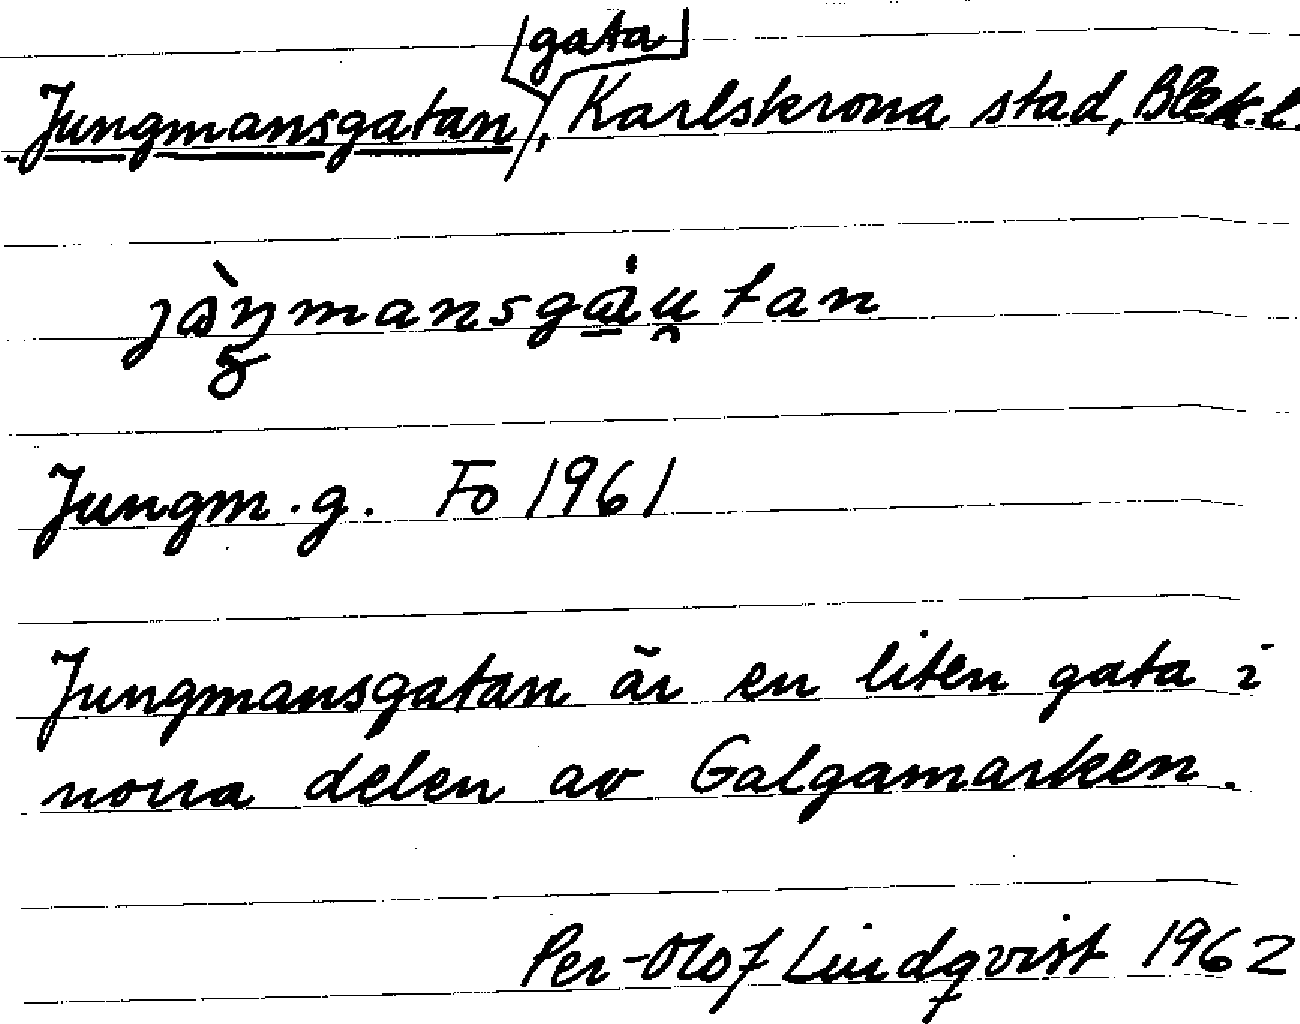 gata
Jungmansgatan, Karlskrona stad, Blek. l.
Jungm. g. Fo 1961
Jungmansgatan är en liten gata i
norra delen av Galgamarken.
Per-Olof Lindqvist 1962